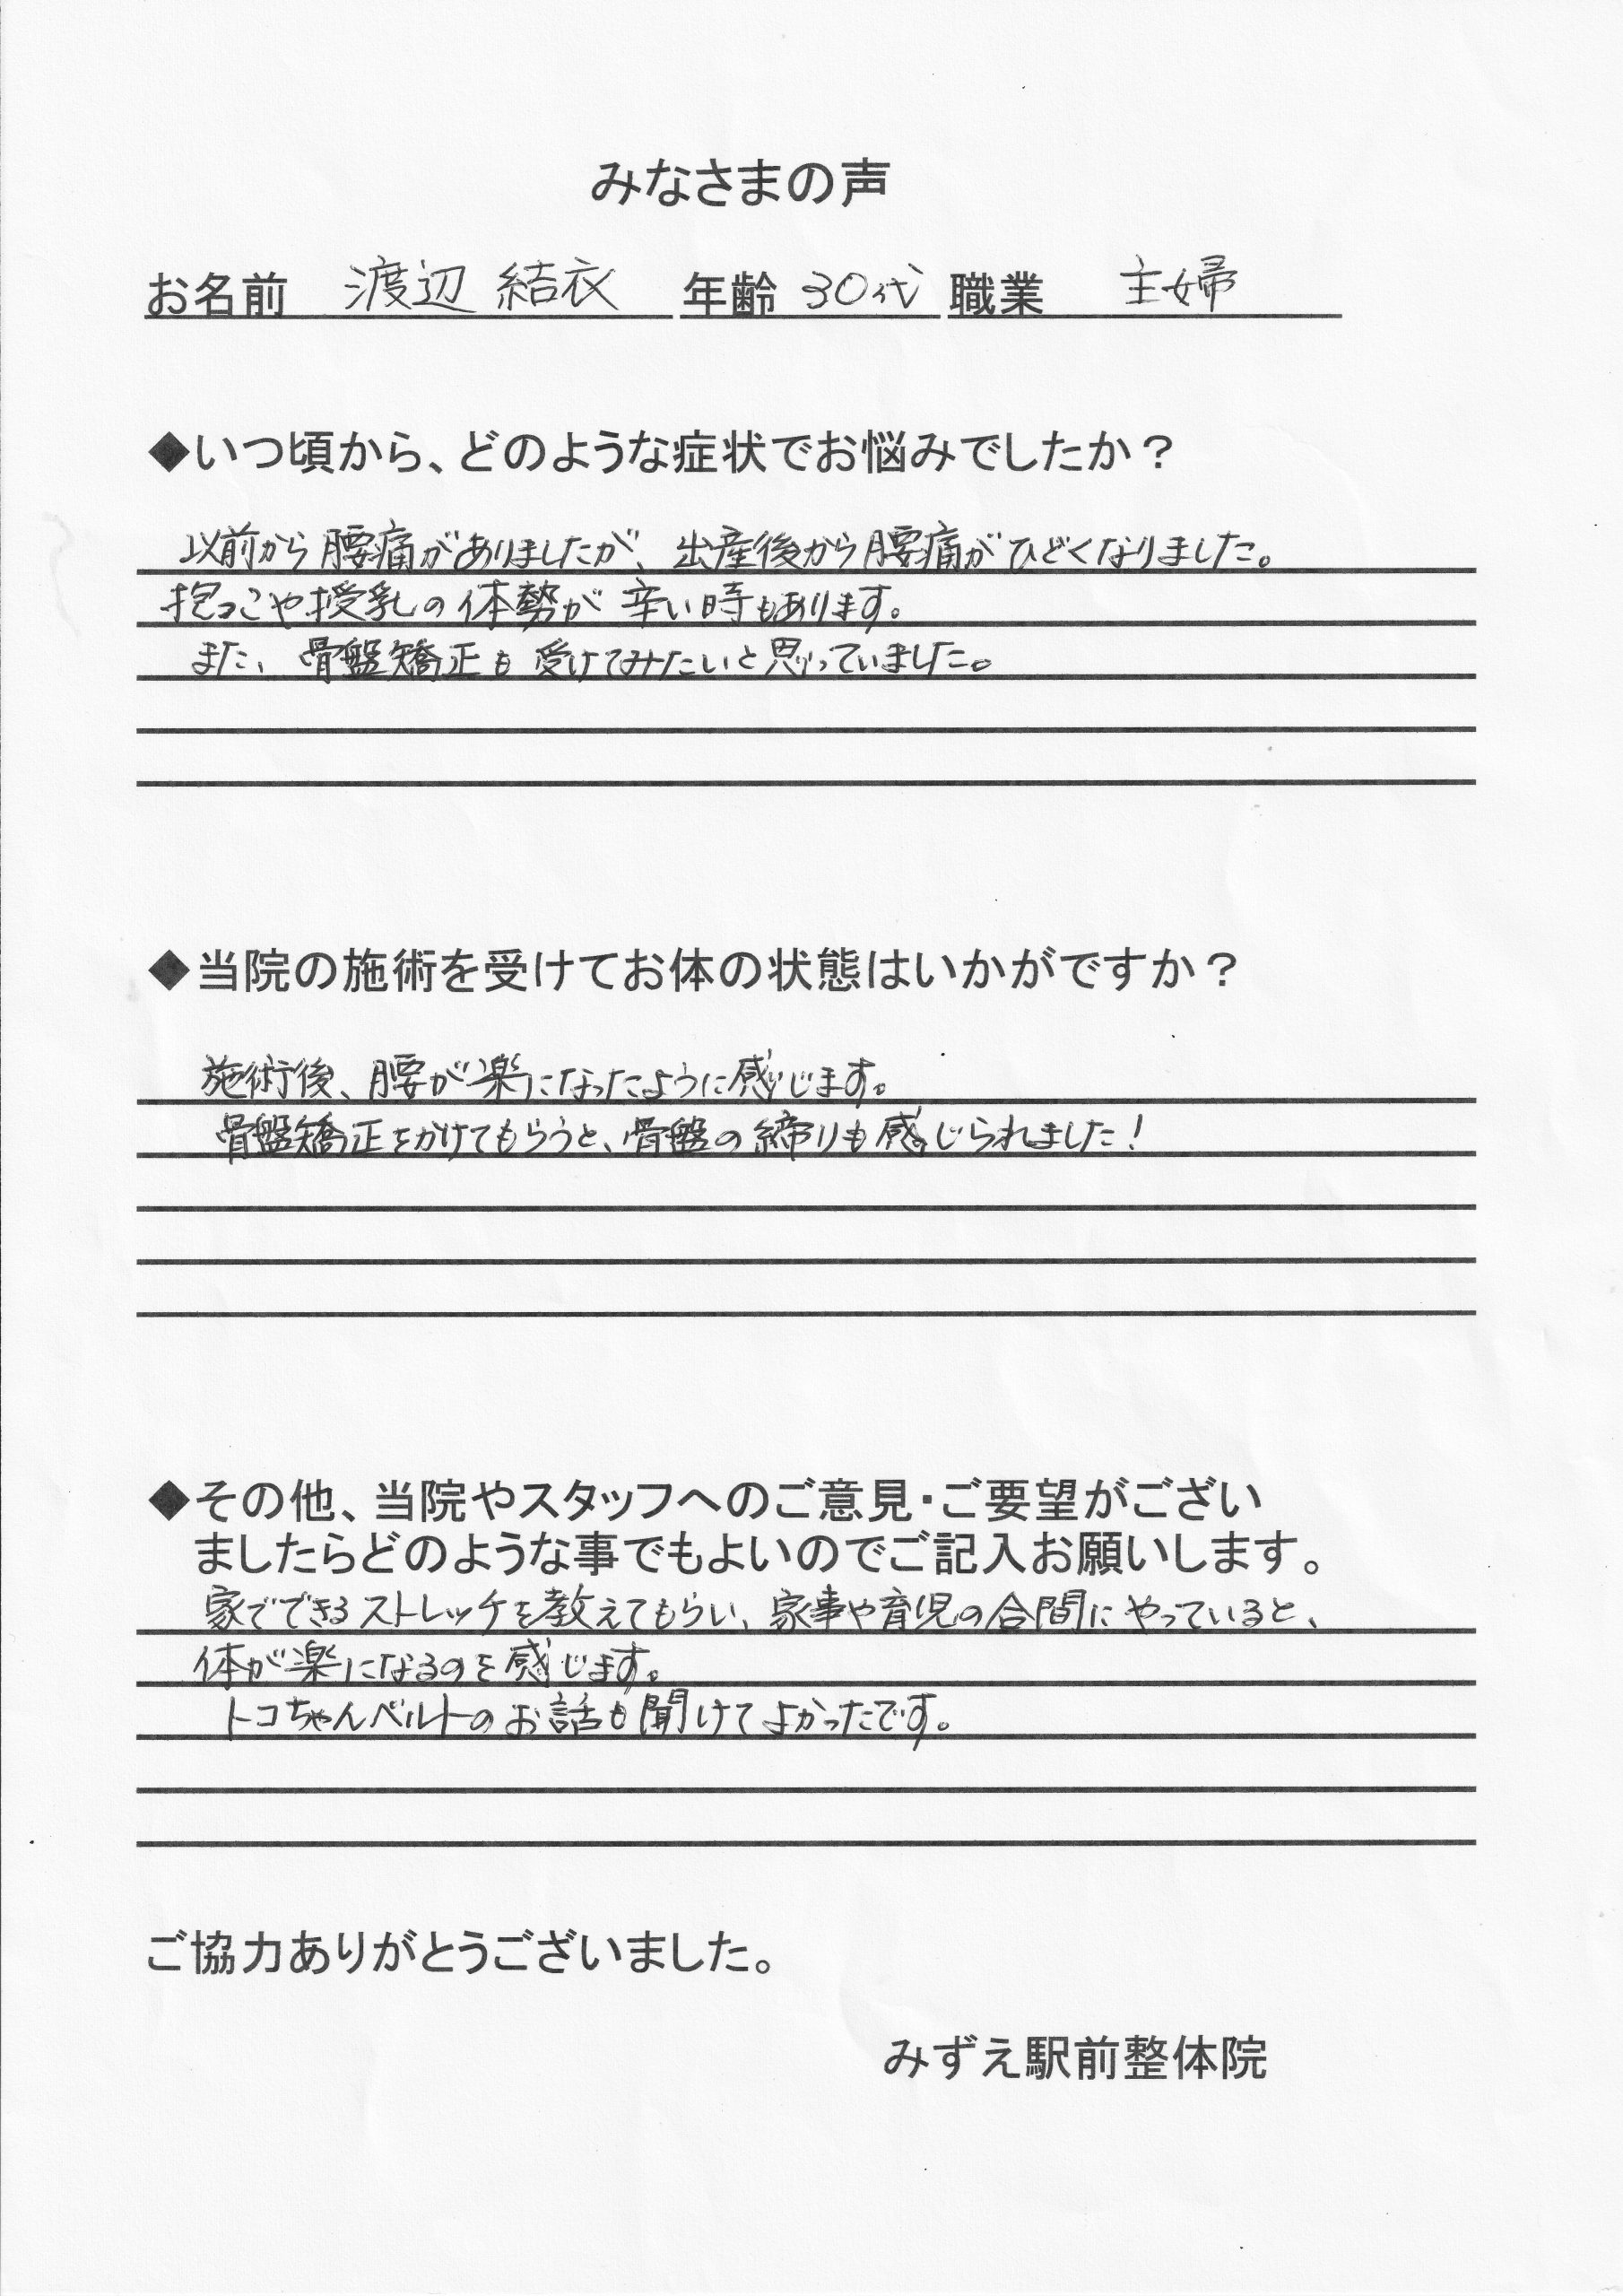 みなさまの声
お名前 渡辺 結衣 年齢 30代 職業 主婦
◆いつ頃から、どのような症状でお悩みでしたか？
以前から腰痛がありましたが、出産後から腰痛がひどくなりました。
抱っこや授乳の体勢が辛い時もあります。
また、骨盤矯正も受けてみたいと思っていました。
◆当院の施術を受けてお体の状態はいかがですか？
施術後、腰が楽になったように感じます。
骨盤矯正をかけてもらうと、骨盤の締りも感じられました！
◆その他、当院やスタッフへのご意見・ご要望がござい
ましたらどのような事でもよいのでご記入お願いします。
家でできるストレッチを教えてもらい、家事や育児の合間にやっていると、
体が楽になるのを感じます。
トコちゃんベルトのお話も聞けてよかったです。
ご協力ありがとうございました。
みずえ駅前整体院